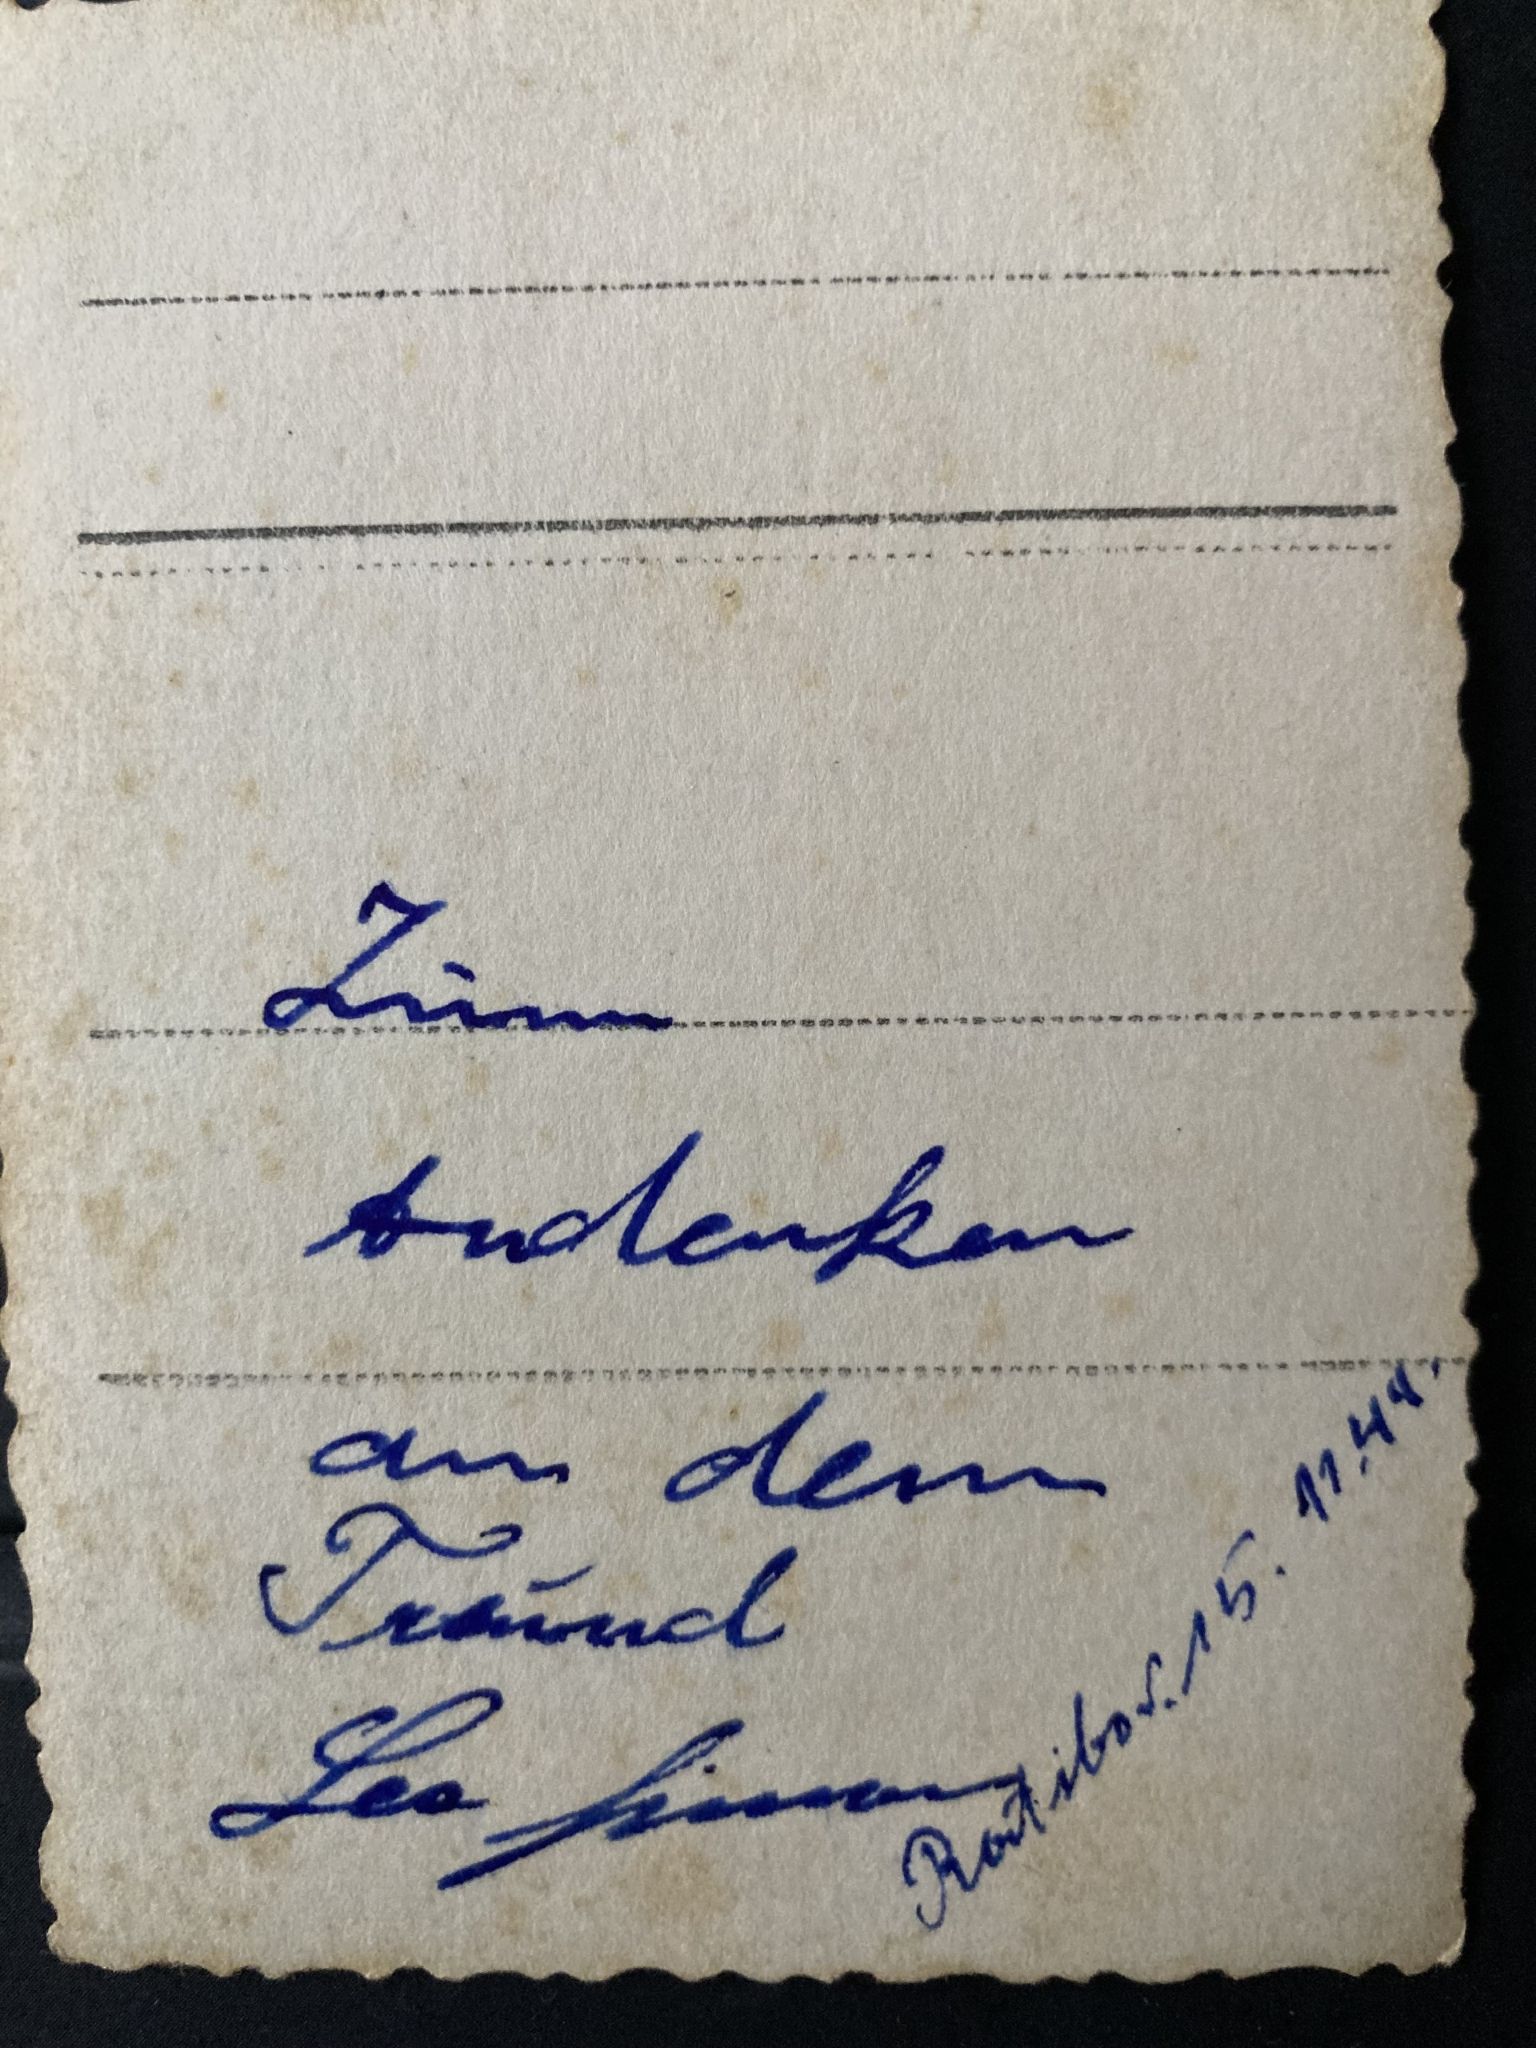 Zum
Andenken
an dem
Freund
Leo Simon
Ratibor. 15. 11. 44.